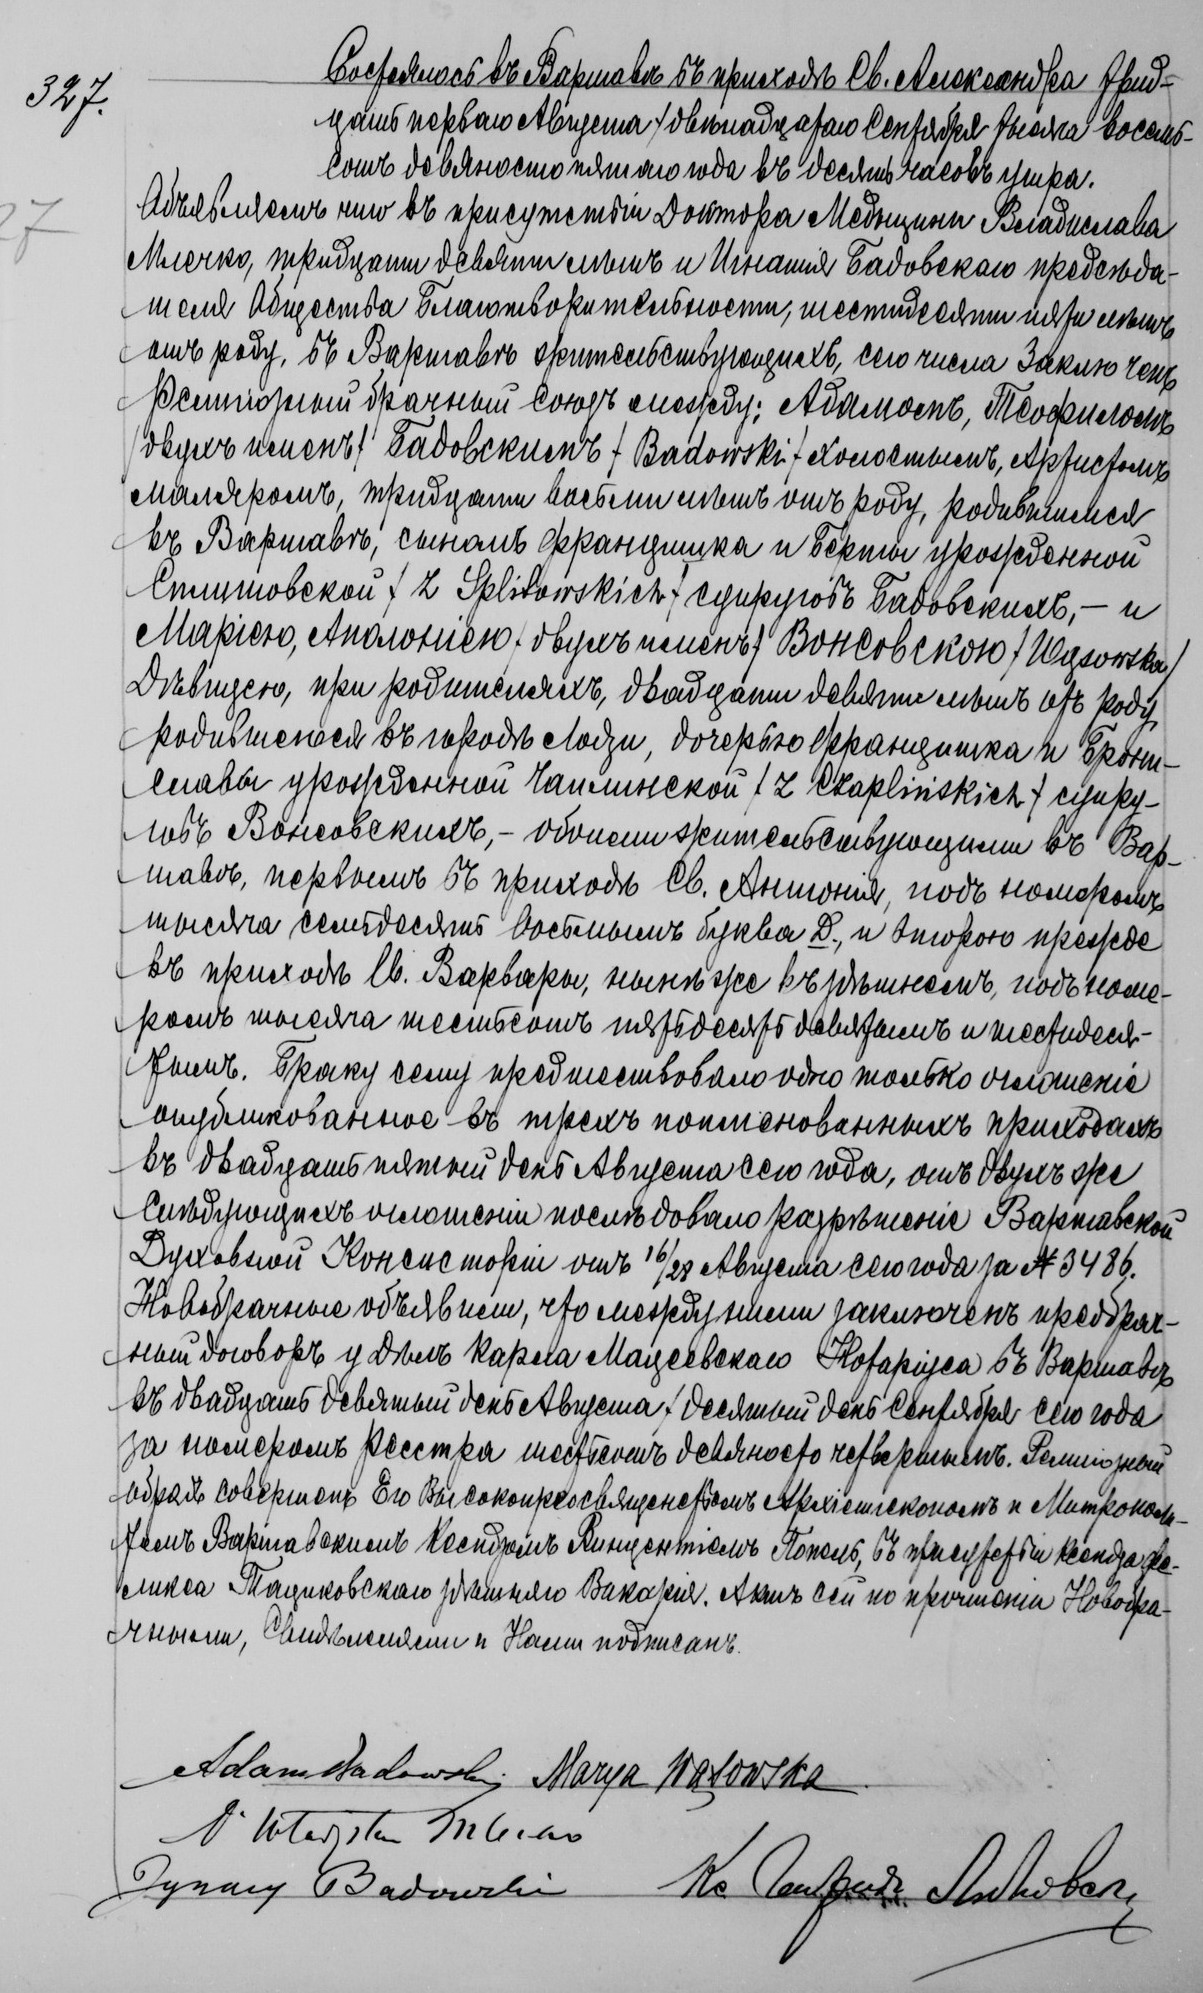 327.
Состоялось въ Варшавѣ въ приходѣ Св. Александра трид-
цать перваго Августа /двѣнадцатаго Сентября тысяча восемь-
сотъ девяносто пятаго года въ десять часовъ утра.
27
Объявляемъ что въ присутствіи Доктора Медицины Владислава
Млечко, тридцати девяти лѣтъ и Игнатія Бадовскаго предсѣда-
теля Общества Благотворительности, шестидесяти пяти лѣтъ
отъ роду, въ Варшавѣ жительствующихъ, сего числа заключенъ
религіозный брачный союзъ между: Адамомъ, Теофиломъ
/двухъ именъ/ Бадовскимъ / Badowski / холостымъ, Артистомъ
маляромъ, тридцати восьми лѣтъ отъ роду, родившимся
въ Варшавѣ, сыномъ Францишка и Берты урожденной
Сплитовской / z Splitowskich / супруговъ Бадовскихъ, – и
Маріею, Аполоніею /двухъ именъ/ Вонсовскою / Wąsowska /
Дѣвицею, при родителяхъ, двадцати девяти лѣтъ отъ роду,
родившеюся въ городѣ Лодзи, дочерью Францишка и Брони-
славы урожденной Чаплинской / z Czaplińskich / супру-
говъ Вонсовскихъ, – обоими жительствующими въ Вар-
шавѣ, первымъ въ приходѣ Св. Антонія, подъ номеромъ
тысяча семьдесять восьмымъ буква D., и второю прежде
въ приходѣ Св. Варвары, нынѣ же въ здѣшнемъ, подъ номе-
ромъ тысяча шестьсотъ пятьдесятъ девятымъ и шестидеся-
тымъ. Браку сему предшествовало одно только оглашеніе
опубликованное въ трехъ поименованныхъ приходахъ
въ двадцать пятый день Августа сего года, отъ двухъ же
слѣдующихъ оглашеніи послѣдовало разрѣшеніе Варшавской
Духовной Консисторіи отъ 16/28 Августа сего года за № 3486.
Новобрачные объявили, что между ними заключенъ предбрач-
ный договоръ у дѣлъ Карла Мацеевскаго Нотаріуса въ Варшавѣ
въ двадцать девятый день Августа / десятый день Сентября сего года
за номеромъ реестра шестьсотъ девяносто четвертымъ. Религіозный
обрядъ совершенъ Его Высокопреосвященствомъ Архіепископомъ и Митрополи-
томъ Варшавскимъ Ксендзомъ Винцентіемъ Попель, въ присутствіи Ксендза Фе-
ликса Тацяковскаго здѣшняго Викарія. Актъ сей по прочтеніи Новобра-
чными, Свидѣтелями и Нами подписанъ.
Adam Badowski Marya Wąsowska
Dr Władysław Mleczko
Ignacy Badowski Кс